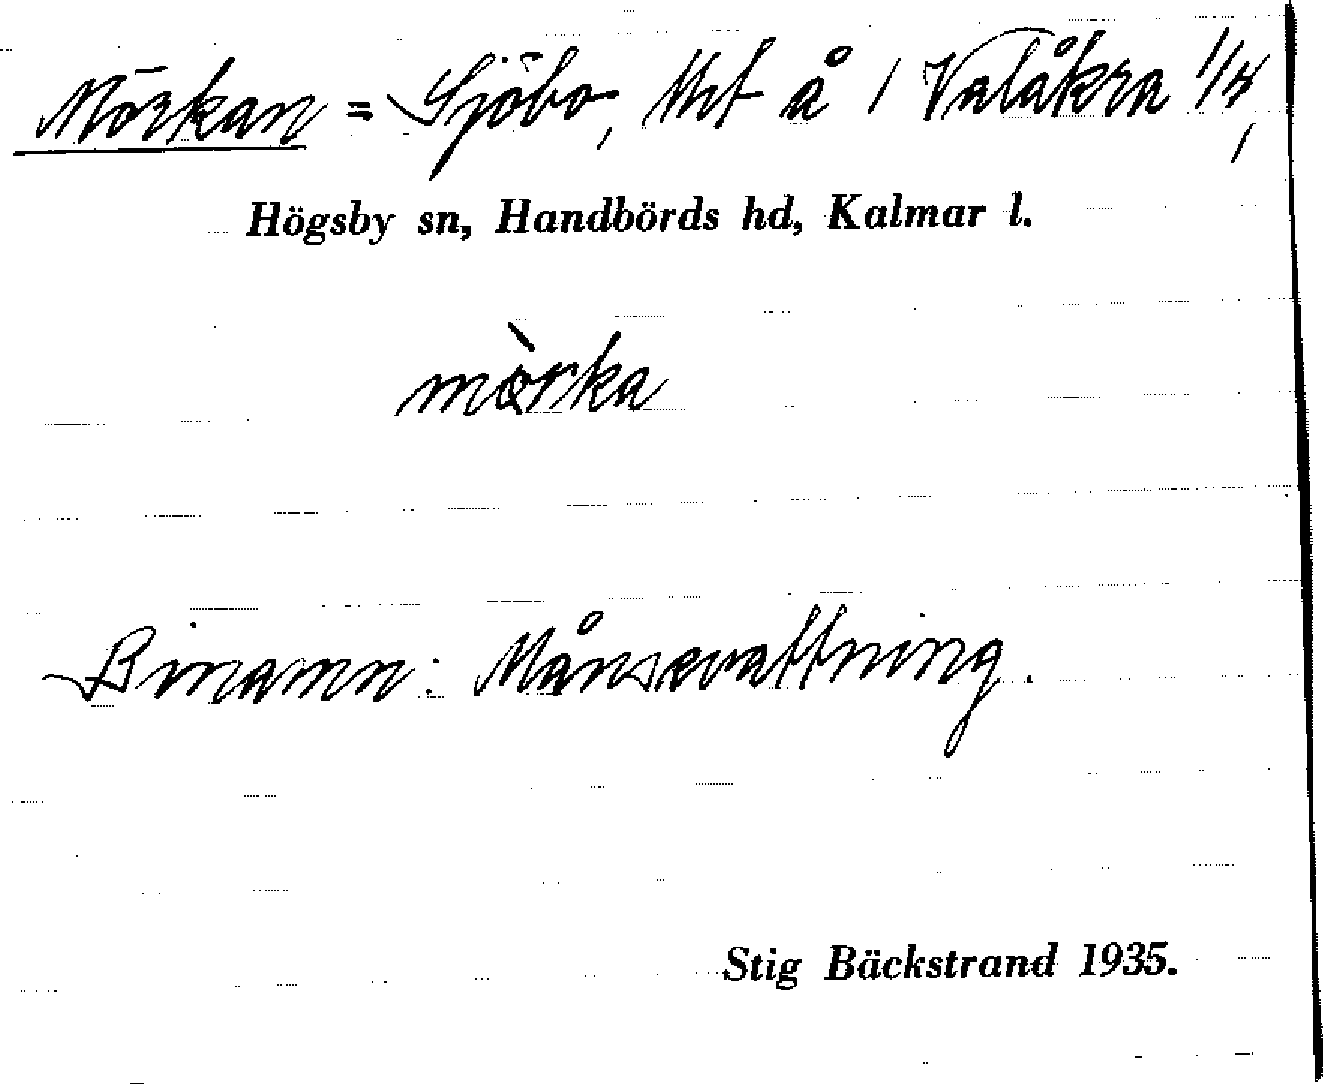 Mörkan = Sjöbo, tht å 1 Valåkra 1/4,
Högsby sn, Handbörds hd, Kalmar l.
mòrka
Binamn: Månsevattning.
Stig Bäckstrand 1935.